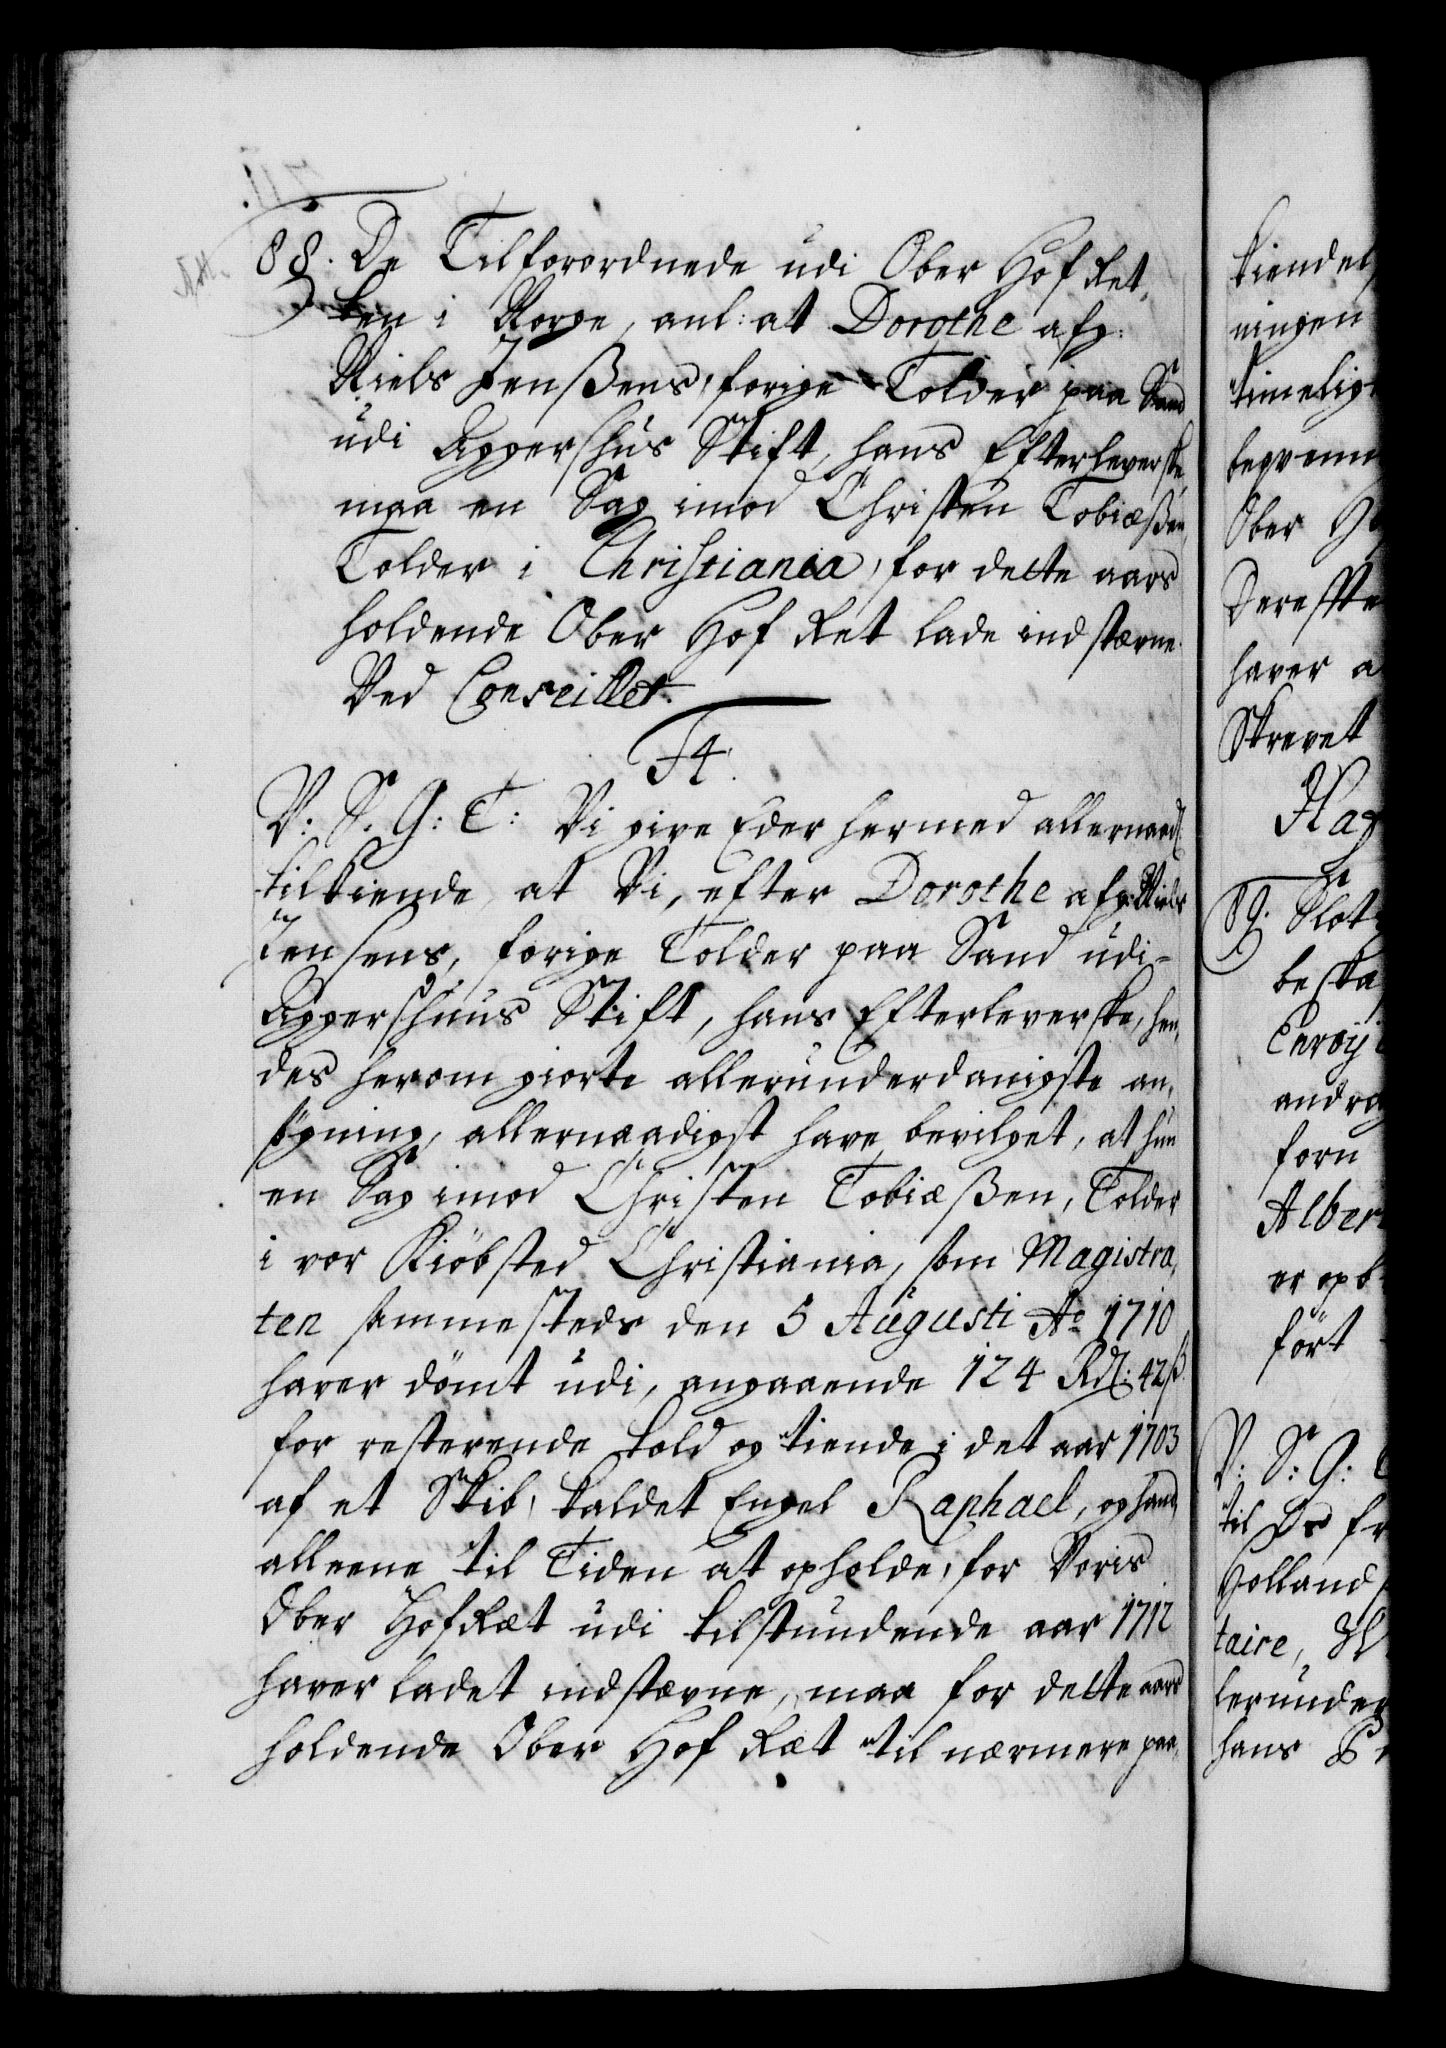 88. De Tilforordnede udi Ober Hof Ret,
ten i Norge, anl: at Dorothe afg:
Niels Jenßens, forige Tolder paa Sand
udi Aggershus Stift, hans Efterleverske,
maa en Sag imod Christen Tobiæßen,
Tolder i Christiania, for dette aars
holdende Ober Hof Ret lade indstævne.
Ved Conseillet.
F4.
V: S. G: T: Vi give Eder hermed allernaadl:
tilkiende, at Vi, efter Dorothe afg: Niels
Jensens, forige Tolder paa Sand udi
Aggershuus Stift, hans Efterleverske, hen,
des herom giorte allerunderdanigste an,
søgning, allernaadigst have bevilget, at hun
en Sag imod Christen Tobiæßen, Tolder
i vor Kiöbsted Christiania, som Magistra,
ten sammesteds den 5 Augusti Ao 1710
haver dömt udi, angaaende 124 Rdl: 42 ß.
for resterende Told og tiende i det aar 1703
af et Skib, kaldet Engel Raphael, og hand
alleene til Tiden at opholde, for Voris
Ober Hof Ræt udi tilstundende aar 1712
haver ladet indstævne, maa for dette aars
holdende Ober Hof Ræt til nærmere paa,
kiendel
ningen
timelig
beqvem
Ober Ho
Dereffte
haver a
Skrevet
Hag
89. Slot
beska
Envoÿ
andra
forn
Alber
er opb
fört
V: S: G:
til Os fr
Holland
taire,
lerunder
hans